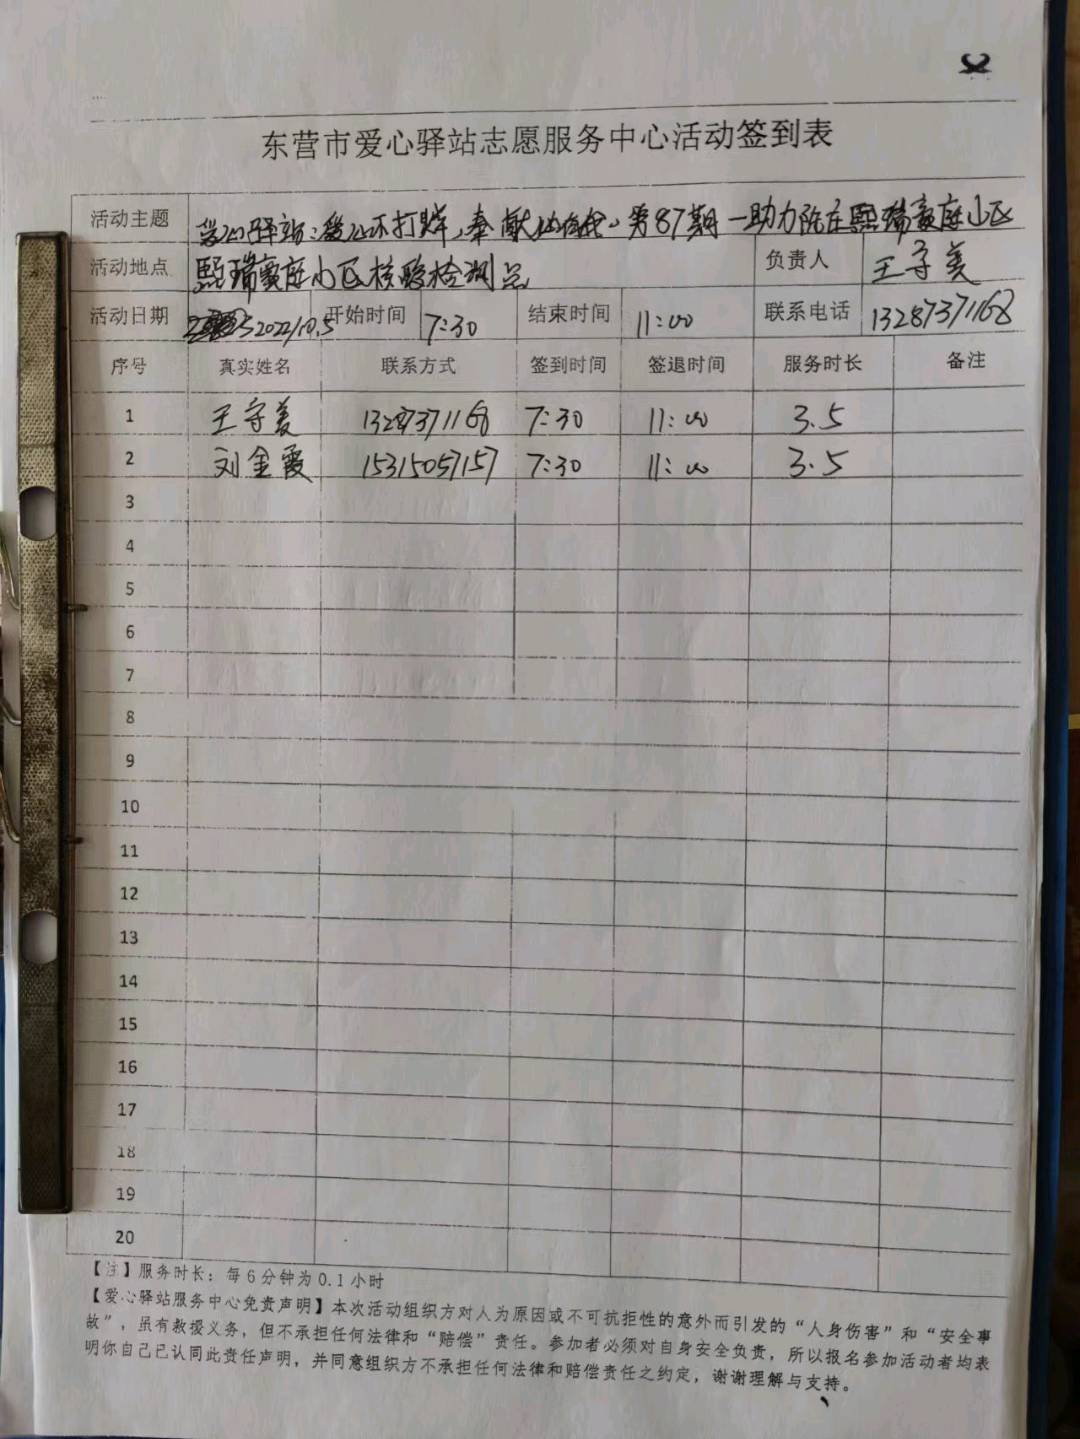 东营市爱心驿站志愿服务中心活动签到表
活动主题 爱心驿站:爱心不打烊,奉献 第87期—助力陈庄熙瑞豪庭小区
活动地点 熙瑞豪庭小区核酸检测点 负责人 王守美
活动日期 2022/10.5 开始时间 7:30 结束时间 11:00 联系电话 13287371168
序号 真实姓名 联系方式 签到时间 签退时间 服务时长 备注
1 王守美 13287371168 7:30 11:00 3.5
2 刘金霞 15315057157 7:30 11:00 3.5
3
4
5
6
7
8
9
10
11
12
13
14
15
16
17
18
19
20
【注】服务时长:每6分钟为0.1小时
【爱心驿站服务中心免责声明】本次活动组织方对人为原因或不可抗拒性的意外而引发的“人身伤害”和“安全事
故”,虽有救援义务,但不承担任何法律和“赔偿”责任。参加者必须对自身安全负责,所以报名参加活动者均表
明你自己已认同此责任声明,并同意组织方不承担任何法律和赔偿责任之约定,谢谢理解与支持。